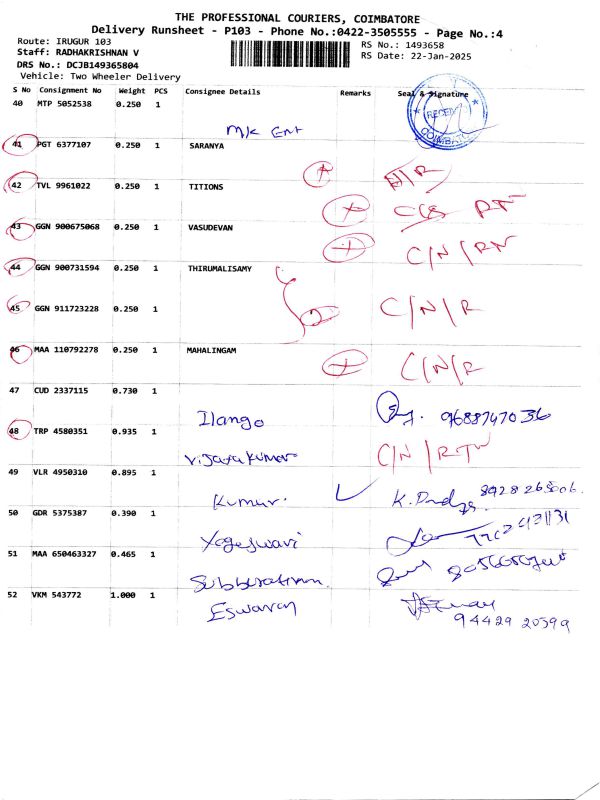 THE PROFESSIONAL COURIERS, COIMBATORE
Delivery Runsheet - P103 - Phone No.:0422-3505555 - Page No.:4
Route: IRUGUR 103
RS No.: 1493658
Staff: RADHAKRISHNAN V
RS Date: 22-Jan-2025
DRS No.: DCJB149365804
Vehicle: Two Wheeler Delivery
S No Consignment No Weight PCS Consignee Details Remarks Seal & Signature
40 MTP 5052538 0.250 1
M/K Ent
COIMBATORE
41 PGT 6377107 0.250 1 SARANYA
N/R
42 TVL 9961022 0.250 1 TITIONS
43 GGN 900675068 0.250 1 VASUDEVAN
C/N/RN
44 GGN 900731594 0.250 1 THIRUMALISAMY
45 GGN 911723228 0.250 1
C/N/R
46 MAA 110792278 0.250 1 MAHALINGAM
C/N/R
47 CUD 2337115 0.730 1
Ilango 9688747036
48 TRP 4580351 0.935 1
Vijayakumar C/N/RTN
49 VLR 4950310 0.895 1
Kumar.
50 GDR 5375387 0.390 1
Yogeswari
51 MAA 650463327 0.465 1
52 VKM 543772 1.000 1
Eswaran
94429 20399